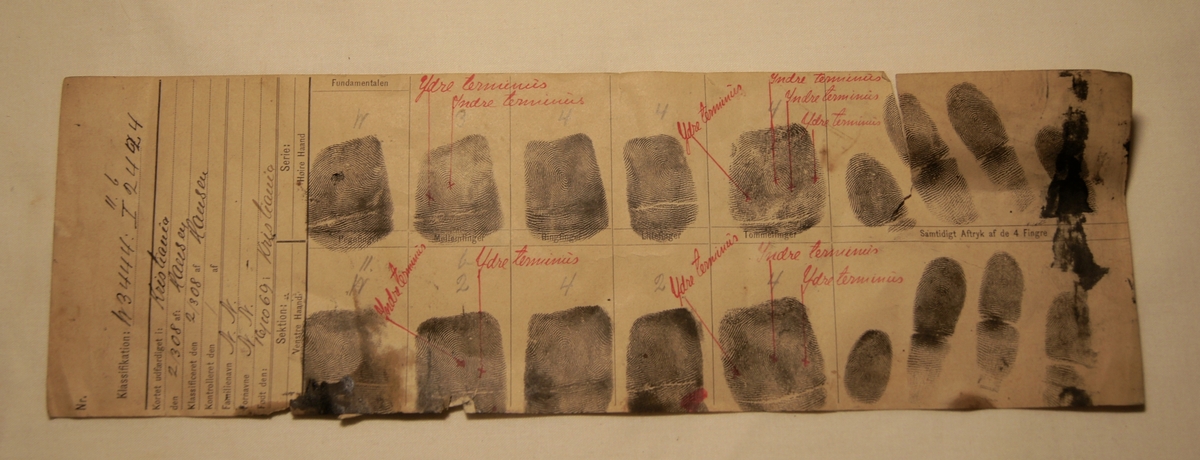 Nr.
11. 6
Klassifikation:
Kortet udfærdiget i: Kristiania
den 2308 af: Hansen
Klassificeret den 2308 af Hansen
Kontrolleret den af
Familienavn N. N.
Fornavne N. N.
Født den: i: Kristiania
Serie:
Høire Haand
Sektion:
Venstre Haand
Fundamentalen
Ydre terminus
Indre terminus
Ydre terminus
Indre terminus
Indre terminus
Ydre terminus
3
4
4
4
Pegefinger
Mellemfinger
Ringfinger
Lillefinger
Tommelfinger
Samtidigt Aftryk af de 4 Fingre
Indre terminus
Ydre terminus
Ydre terminus
Indre terminus
Ydre terminus
11.
6
2
4
2
4